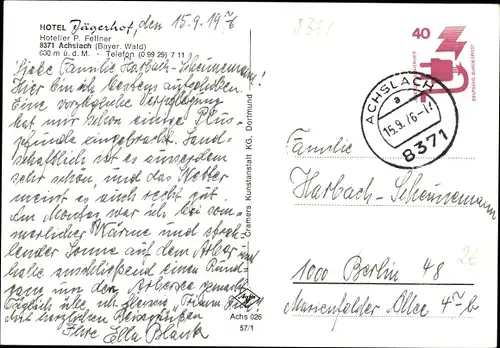 HOTEL Jägerhof, den 15.9.1976
Hotelier P. Fellner
8371 Achslach (Bayer. Wald)
600 m ü. d. M. - Telefon (0 99 29) 7 11
Liebe Familie Harbach-Scheunemann!
Hier bin ich bestens aufgehoben.
Eine vorzügliche Verpflegung
hat mir schon einige Plus-
pfunde eingebracht. Land-
schaftlich ist es ausserdem
sehr schön, und das Wetter
meint es auch recht gut.
Am Montag war ich bei som-
merlicher Wärme und strah-
lender Sonne auf dem Arber und
habe anschließend einen Rund-
gang um den Arbersee gemacht.
Täglich übe ich
Mit herzlichen Reisegrüßen
Ihre Ella Blank
Cramers Kunstanstalt KG, Dortmund
Achs 026
57/1
8371
40
DEUTSCHE BUNDESPOST
ACHSLACH
a
15.9.76-17
8371
Familie
Harbach-Scheunemann
1000 Berlin 48
Marienfelder Allee 4 b
26